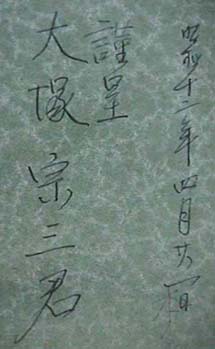 昭和十二年四月廿八日
謹呈
大塚宗三君